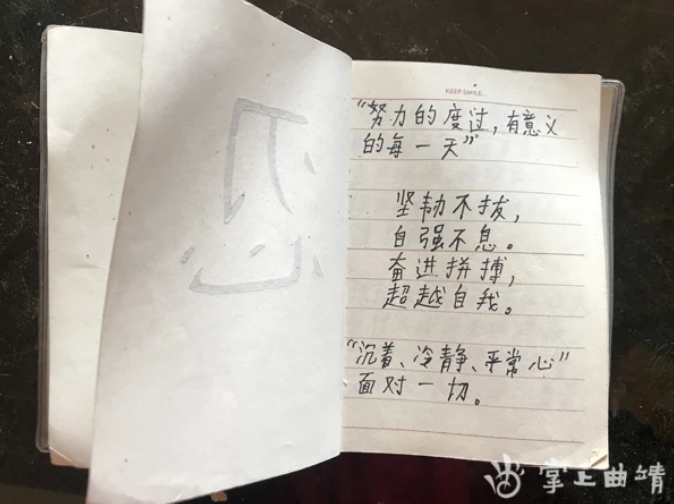 忍
KEEP SMILE...
“努力的度过,有意义
的每一天”
坚韧不拔,
自强不息。
奋进拼搏,
超越自我。
“沉着、冷静、平常心”
面对一切。
掌上曲靖